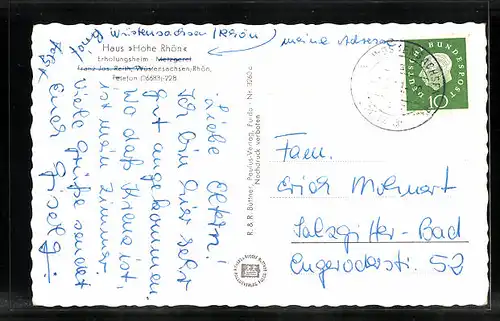 Wüstensachsen/Rhön
meine Adresse
Haus »Hohe Rhön«
Erholungsheim - Metzgerei
Franz Jos. Reith, Wüstensachsen/Rhön,
Telefon (06683) 228
Liebe Eltern!
Ich bin hier sehr
gut angekommen.
Wo daß Kreuz ist,
ist mein Zimmer.
Viele Grüße sendet
Euch
R. & R. Büttner, Paulus-Verlag, Fulda · Nr.
Nachdruck verboten
DEUTSCHE BUNDESPOST
10
Fam.
Erich
Salzgitter-Bad
52